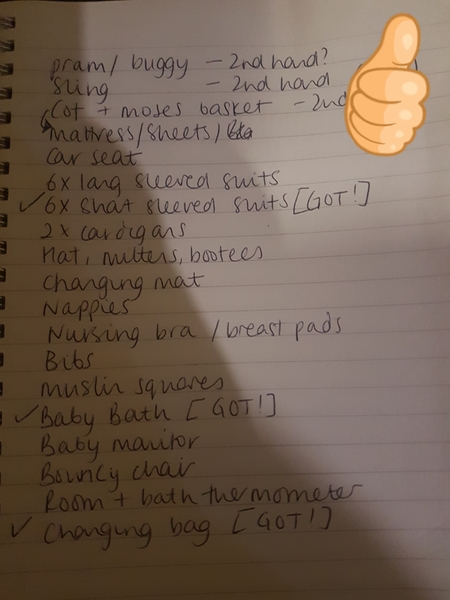 pram/ buggy - 2nd hand?
Sling - 2nd hand
Cot + moses basket - 2nd
Mattress/sheets/
Car seat
6x long sleeved suits
✓ 6x short sleeved suits [GOT!]
2x cardigans
Hat, mittens, bootees
Changing mat
Nappies
Nursing bra / breast pads
Bibs
muslin squares
✓ Baby Bath [GOT!]
Baby monitor
Bouncy chair
Room + bath thermometer
✓ Changing bag [GOT!]